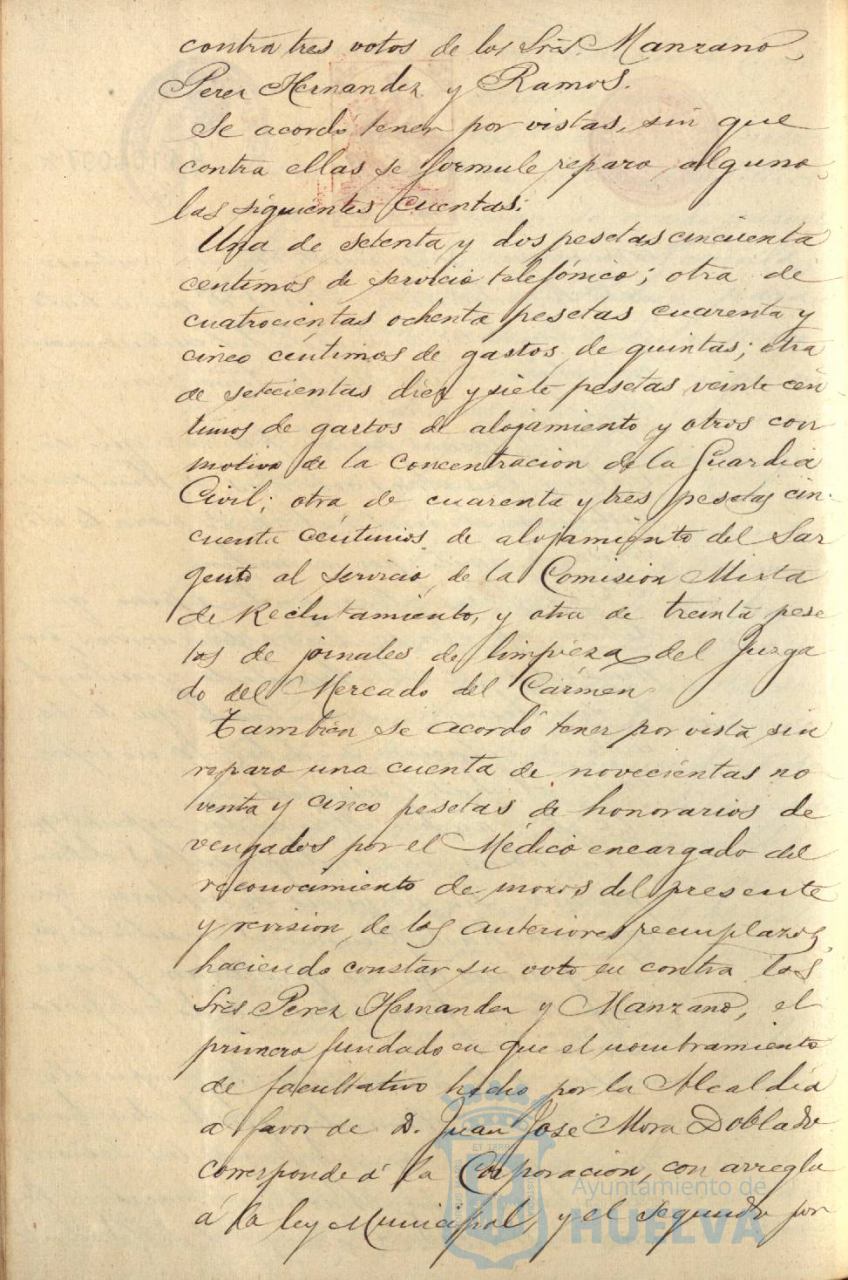 contra tres votos de los Sres. Manzano,
Perez Hernandez y Ramos.
Se acordó tener por vistas, sin que
contra ellas se formule reparo alguno,
las siguientes cuentas:
Una de setenta y dos pesetas cincuenta
céntimos de servicio telefónico; otra de
cuatrocientas ochenta pesetas cuarenta y
cinco céntimos de gastos de quintas; otra
de setecientas diez y siete pesetas veinte cén
timos de gastos de alojamiento y otros con
motivo de la concentracion de la Guardia
Civil; otra de cuarenta y tres pesetas cin-
cuenta céntimos de alojamiento del Sar
gento al servicio de la Comision Mixta
de Reclutamiento, y otra de treinta pese
tas de jornales de limpieza del Juzga
do del Mercado del Cármen.
Tambien se acordó tener por vista sin
reparo una cuenta de novecientas no
venta y cinco pesetas de honorarios de
vengados por el Médico encargado del
reconocimiento de mozos del presente
y revision de los anteriores reemplazos,
haciendo constar su voto en contra los
Sres. Perez Hernandez y Manzano, el
primero fundado en que el nombramiento
de facultativo hecho por la Alcaldía
a favor de D. Juan José Mora Doblado
corresponde á la Corporacion, con arreglo
á la ley Municipal, y el segundo por
Ayuntamiento de
HUELVA